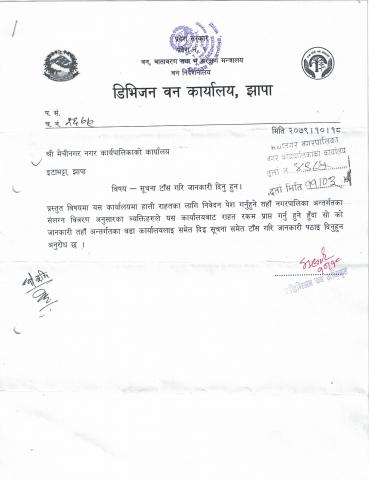 प्रदेश सरकार
वन, वातावरण तथा भू संरक्षण मन्त्रालय
वन निर्देशनालय
डिभिजन वन कार्यालय, झापा
प. सं.
च. नं.
मिति २०७९।१०।१८
श्री मेचीनगर नगर कार्यपालिकाको कार्यालय
इटाभट्टा, झापा
विषय – सूचना टाँस गरि जानकारी दिनु हुन।
प्रस्तुत विषयमा यस कार्यालयमा हात्ती राहतका लागि निवेदन पेश गर्नुहुने तहाँ नगरपालिका अन्तर्गतका
संलग्न विवरण अनुसारका व्यक्तिहरुले यस कार्यालयबाट राहत रकम प्राप्त गर्नु हुने हुँदा सो को
जानकारी तहाँ अन्तर्गतका वडा कार्यालयलाई समेत दिइ सूचना समेत टाँस गरि जानकारी पठाइ दिनुहुन
अनुरोध छ ।